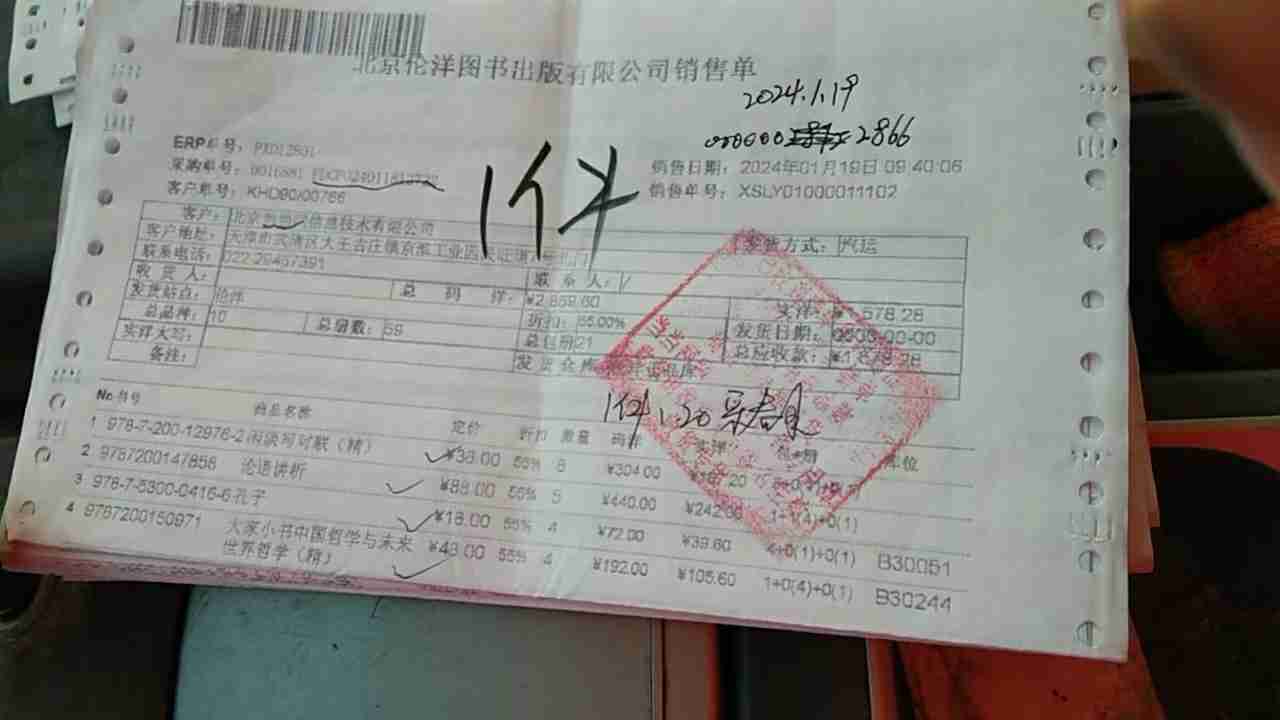 北京伦洋图书出版有限公司销售单
2024.1.19
2866
ERP单号:
销售日期: 2024年01月19日 09:40:06
采购单号: 0016881
销售单号: XSLY01000011102
客户单号: KHD80/00766
1件
客户: 北京 信息技术有限公司
发货方式: 汽运
客户地址: 天津市武清区大王古庄镇京滨工业园
联系电话: 022.29457391
收货人: 联系人: /
发货站点: 伦洋 总码洋: ¥2,859.60 实洋:
总品种: 10 总册数: 59 折扣: 55.00% 发货日期: 0000-00-00
实洋大写: 总包册21 总应收款:
备注: 发货仓库
1件 1.20
No 书号 商品名称 定价 折扣 数量 码洋 实洋 库位
1 978-7-200-12976-2 闲谈写对联(精) ¥38.00 55% 8 ¥304.00
2 9787200147858 论语讲析 ¥88.00 55% 5 ¥440.00 1+0(4)+0(1)
3 978-7-5300-0416-6 孔子 ¥18.00 55% 4 ¥72.00 ¥39.60 4+0(1)+0(1) B30051
4 9787200150971 大家小书中国哲学与未来 ¥48.00 55% 4 ¥192.00 ¥105.60 1+0(4)+0(1) B30244
世界哲学(精)